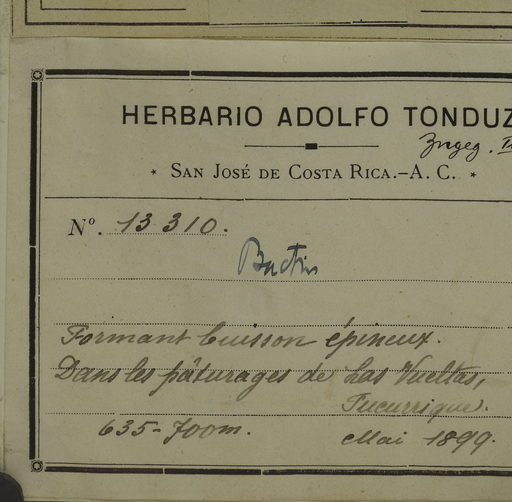 HERBARIO ADOLFO TONDUZ
Ingeg.
* SAN JOSÉ DE COSTA RICA.-A. C. *
Nº. 13310.
Bactris
Formant buisson épineux.
Dans les pâturages de Las Vueltas,
Tucurrique.
635-700m. Mai 1899.